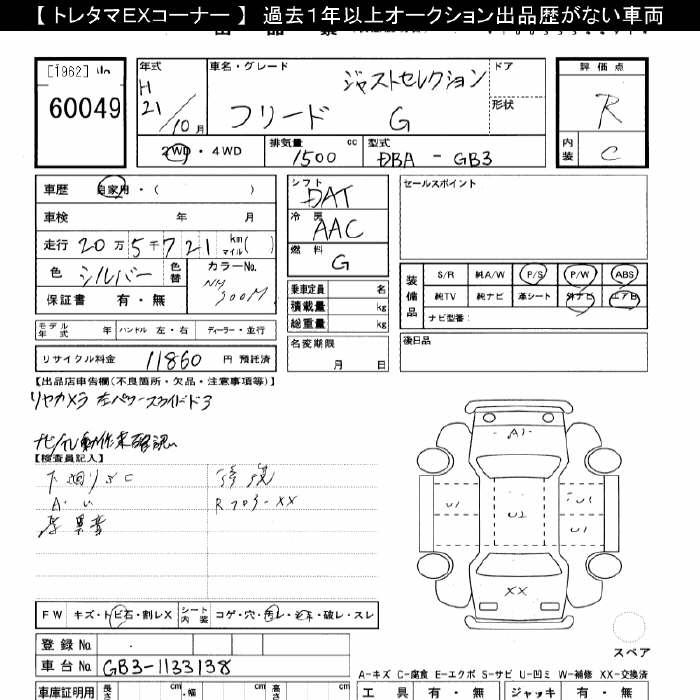 【 トレタマEXコーナー 】 過去１年以上オークション出品歴がない車両
60049
年式
H
21
10月
車名・グレード
ジャストセレクション
フリード G
ドア
形状
2WD・4WD
排気量
1500 cc
型式
DBA - GB3
評価点
R
内装
C
車歴 自家用・( )
車検 年 月
走行 20万5千721 km マイル( )
色 シルバー 色替
カラーNo.
NH 700M
保証書 有・無
シフト
DAT
冷房
AAC
燃料
G
乗車定員 名
積載量 kg
総重量 kg
名変期限
月 日
セールスポイント
装備品
S/R 純A/W P/S P/W ABS
純TV 純ナビ 革シート 外ナビ エアB
ナビ型番:
後日品
モデル年式 年 ハンドル 左・右 ディーラー・並行
リサイクル料金 11860 円 預託済
【出品店申告欄(不良箇所・欠品・注意事項等)】
リヤカメラ 左パワースライドドア
ナビ/TV動作未確認
【検査員記入】
下廻りサビ 修復
A・U Rフロアー XX
A1
U1
U2
U1
U1
XX
FW キズ・トビ石・割レX
シート内装 コゲ・穴・汚レ・シミ・破レ・スレ
登録 No.
車台 No. GB3-1133138
スペア
A-キズ C-腐食 E-エクボ S-サビ U-凹ミ W-補修 XX-交換済
車庫証明用 長さ cm ・幅 cm 高さ cm
工具 有・無 ジャッキ 有・無